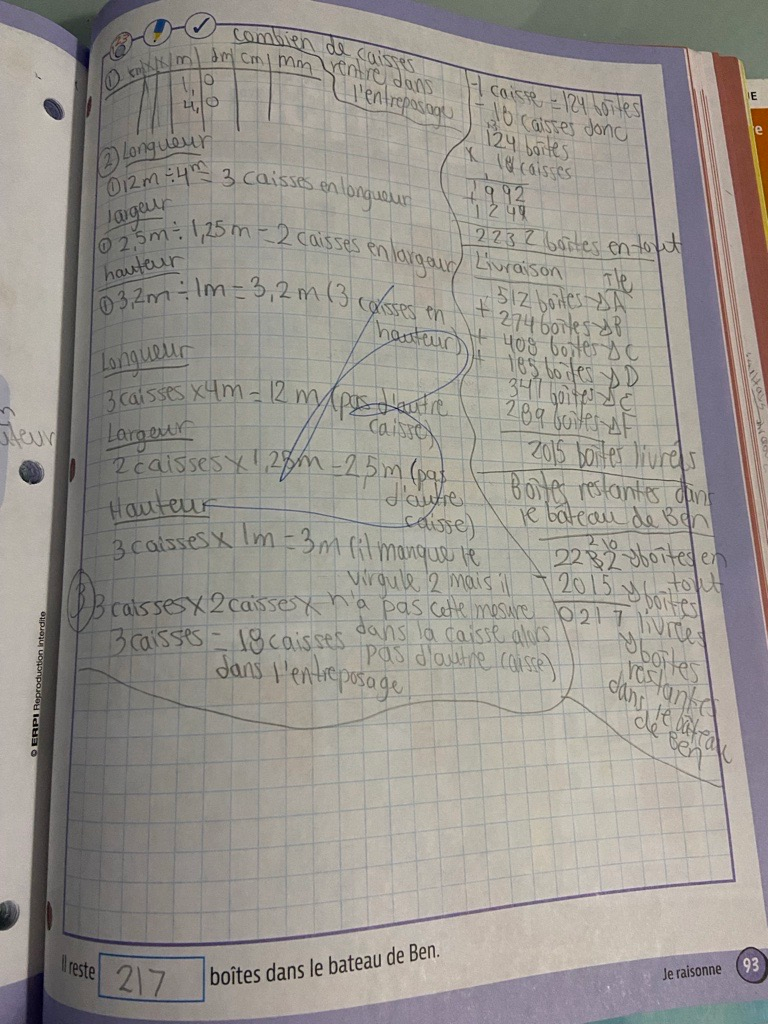 combien de caisses
rentre dans
l'entreposage
① km hm m dm cm mm
1, 0
4, 0
② Longueur
① 12m ÷ 4m = 3 caisses en longueur
largeur
① 2,5m ÷ 1,25m = 2 caisses en largeur
hauteur
① 3,2m ÷ 1m = 3,2m (3 caisses en
hauteur)
Longueur
3 caisses x 4m = 12 m (pas d'autre
caisse)
Largeur
2 caisses x 1,25m = 2,5m (pas
d'autre
caisse)
Hauteur
3 caisses x 1m = 3m (il manque le
virgule 2 mais il
n'a pas cette mesure
dans la caisse alors
pas d'autre caisse)
③ 3 caisses x 2 caisses x
3 caisses = 18 caisses
dans l'entreposage
1 caisse = 124 boîtes
18 caisses donc
124 boîtes
x 18 caisses
992
+ 124
2232 boîtes en tout
Livraison île
512 boîtes → A
+ 274 boîtes → B
+ 408 boîtes → C
+ 185 boîtes → D
347 boîtes → E
289 boîtes → F
2015 boîtes livrées
Boîtes restantes dans
le bateau de Ben
2 10
2232 → boîtes en
tout
- 2015 → boîtes
livrées
0217
→ boîtes
restantes
dans le bateau
de Ben
Il reste 217 boîtes dans le bateau de Ben.
Je raisonne 93
© ERPI Reproduction interdite